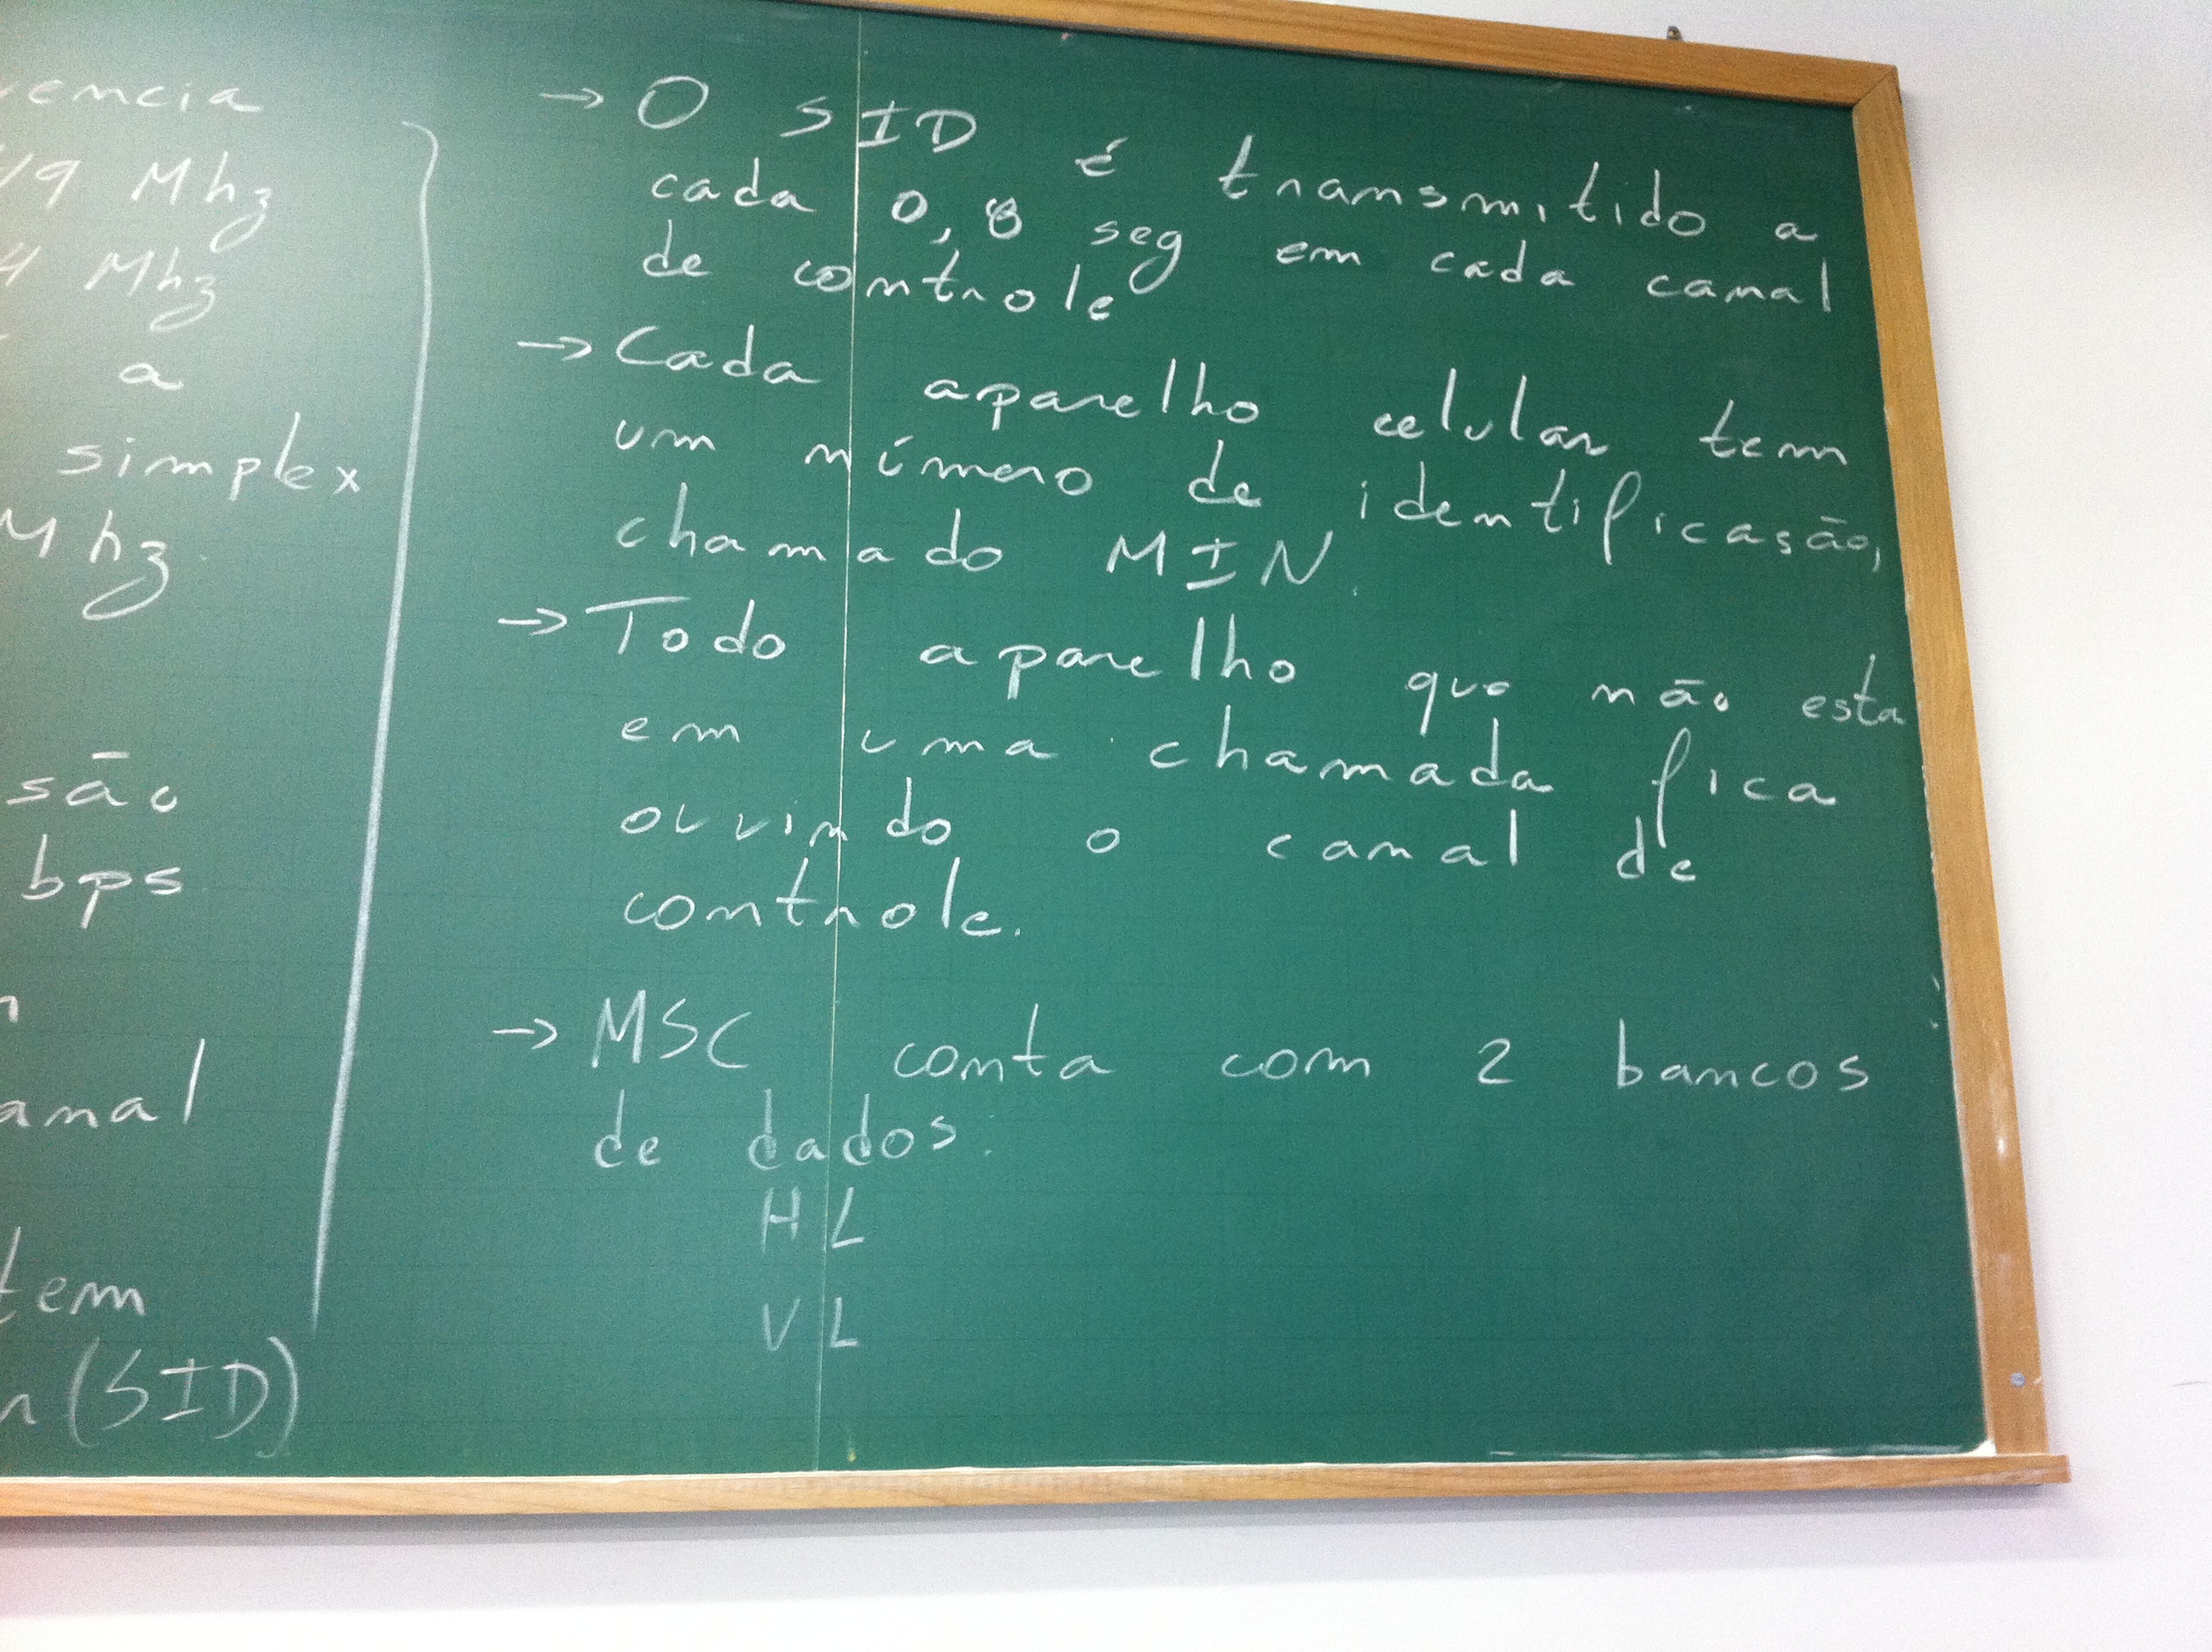 49 Mhz
4 Mhz
a
simplex
Mhz
são
bps
tem
(SID)
→ O SID é transmitido a
cada 0,8 seg em cada canal
de controle
→ Cada aparelho celular tem
um número de identificasão,
chamado MIN.
→ Todo aparelho que não esta
em uma chamada fica
ouvindo o canal de
controle.
→ MSC conta com 2 bancos
de dados.
HL
VL